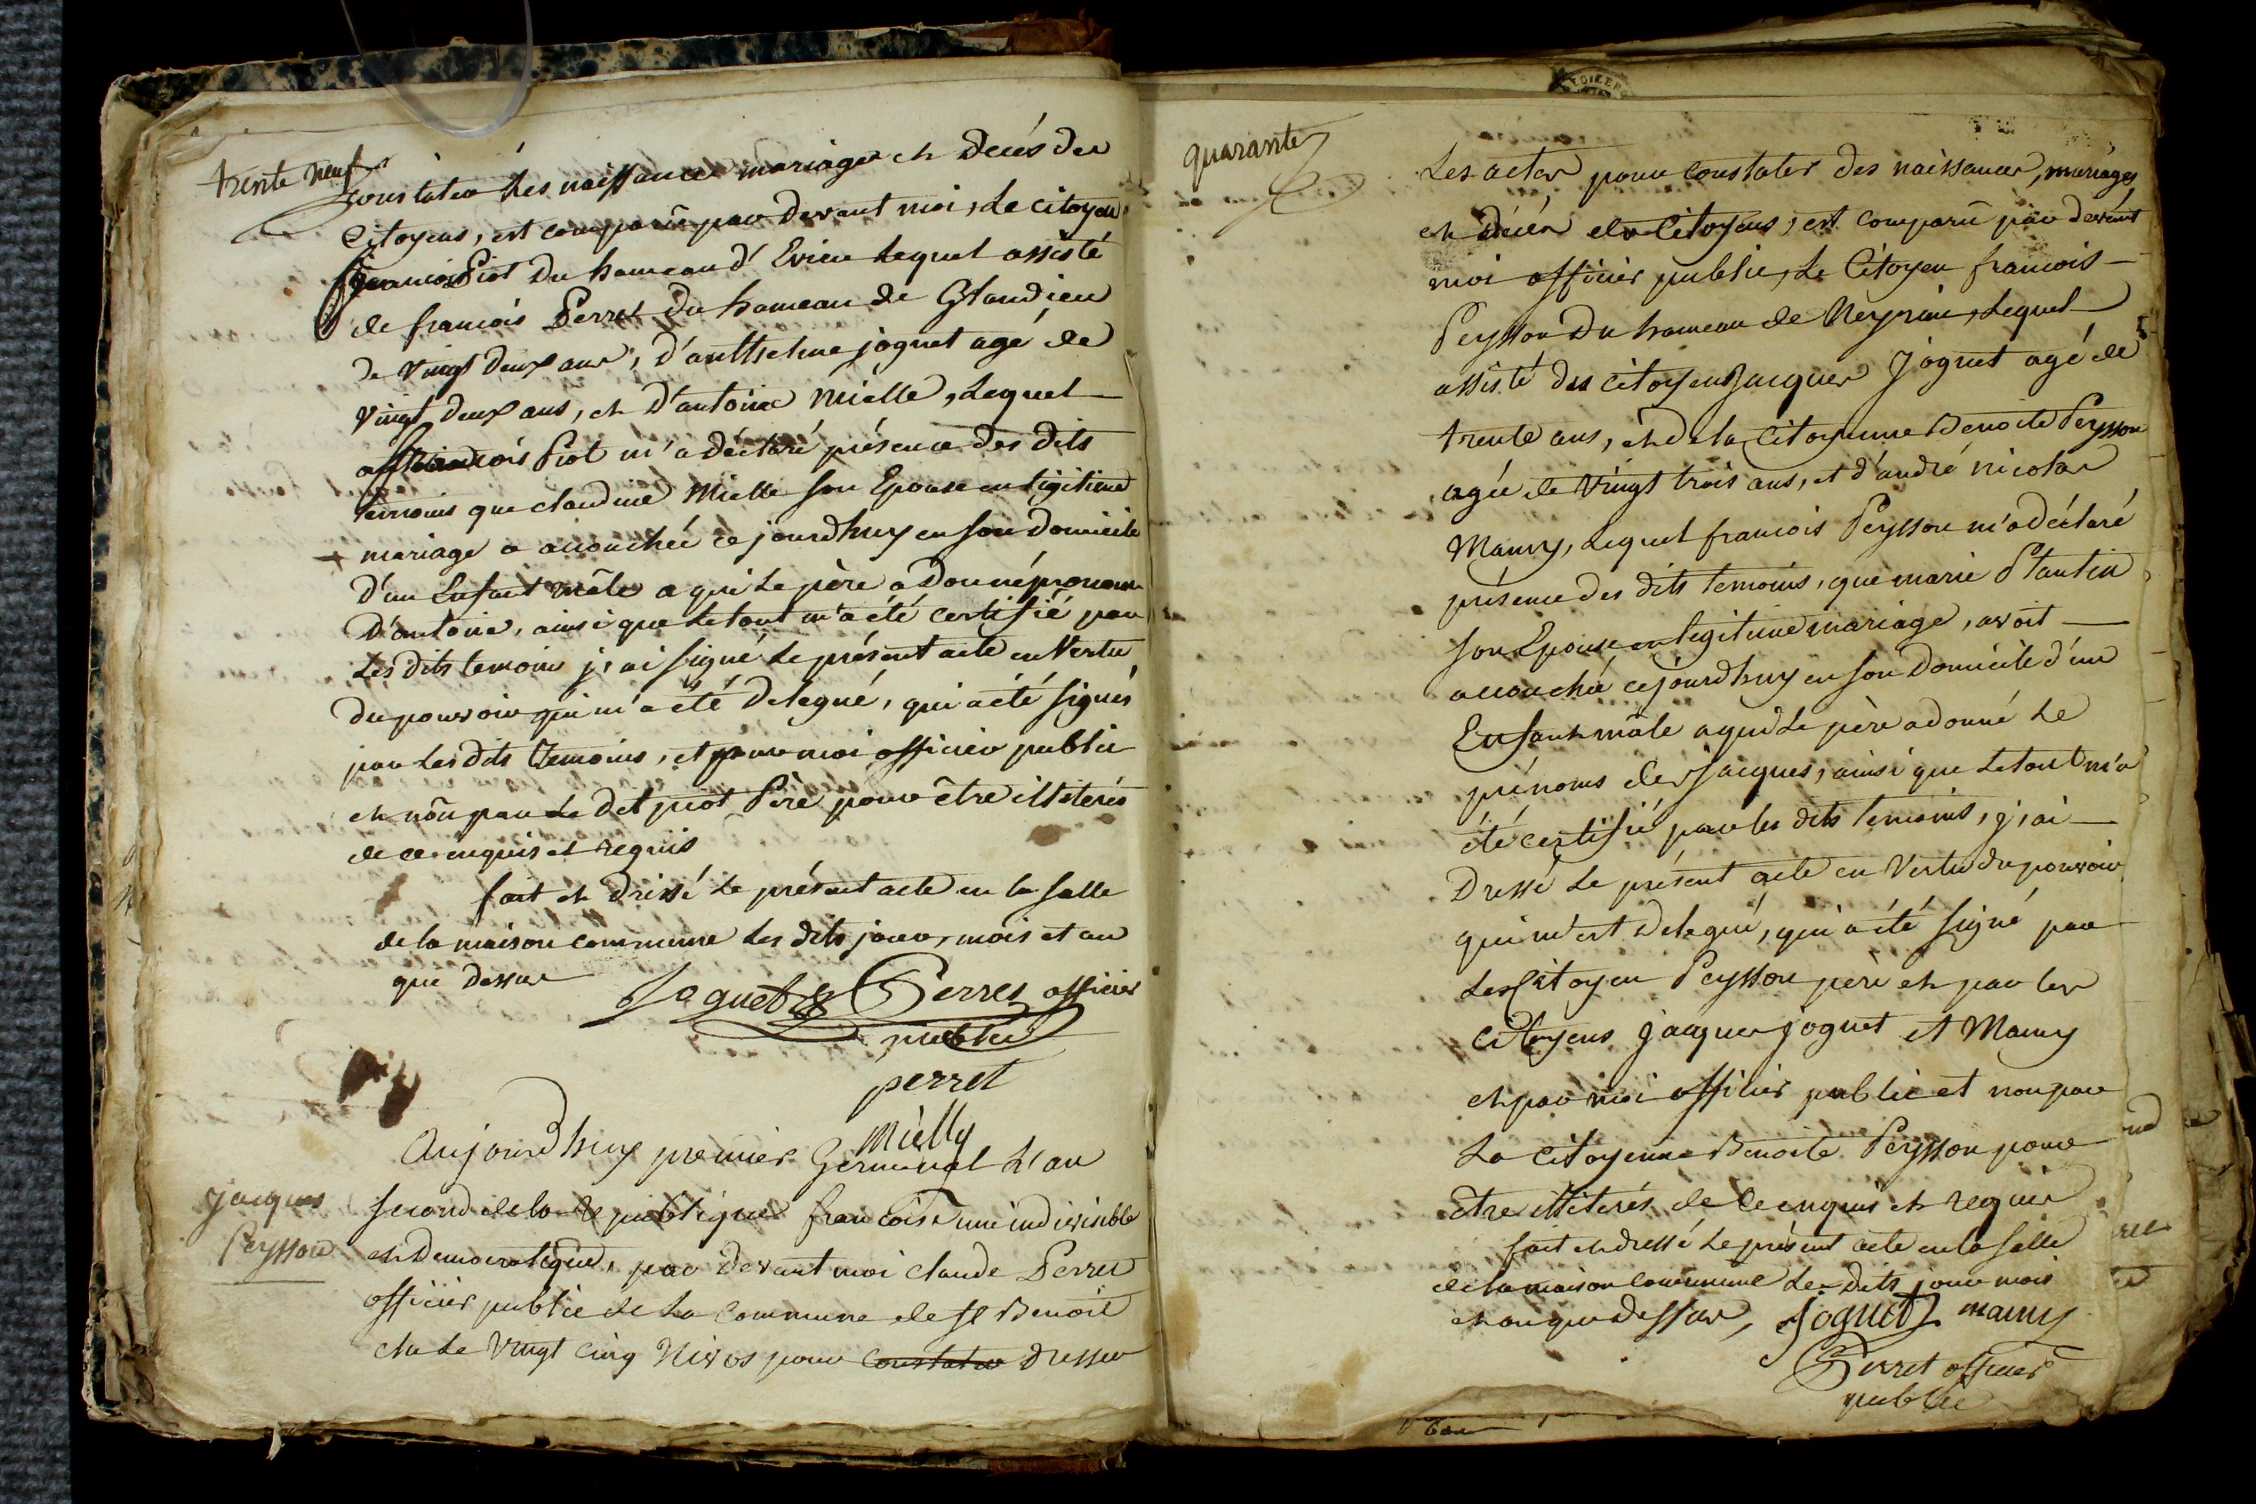 trente neuf
constater les naissances mariages et decés des
Citoyens, est comparû par devant moi, le citoyen
francois Piot du hameau d'Evieu lequel assisté
de francois Perret du hameau de Glandieu
de vingt deux ans, d'anthelme joguet agé de
vingt deux ans, et d'antoine Mielle, lequel
francois Piot m'a déclaré présence des dits
temoins que claudine Mielle son Epouse en ligitime
mariage a accouchée ce jourdhuy en son Domicile
D'un Enfant mâle a qui le père a donné pronom
D'antoine, ainsi que le tout m'a été certifié par
Les dits temoins j, ai signé le présent acte en Vertu
du pouvoir qui m'a été delegué, qui a été signés
par les dits temoins, et par moi officier public
et nôn par le dit piot Père pour être illiterés
de ce enquis et requis
fait et dressé le présent acte en la salle
de la maison commune les dits jour, mois et an
que dessus
Joguet Perret officier
public
perret
Mielly
Aujourdhuy premier Germinal L'an
Jacques
Peysson
second de la Republique francoise une indivisible
et Democratique, par devant moi claude Perret
officier public de La Commune de st Benoit
élu le vingt cinq Nivos pour constater dresser
quarante
Les actes pour constater des naissances, mariages
et décés des Citoyens, est comparû par devant
moi officier public, le Citoyen francois
Peysson du hameau de Neyrieu, lequel
assisté des citoyens Jacques Joguet agé de
trente ans, et de la Citoyenne Benoite Peysson
agée de vingt trois ans, et d'andré nicolas
Mamy, lequel francois Peysson m'a déclaré
présence des dits temoins, que marie Plantin
son Epouse en legitime mariage, avoit
accouchée ce jourdhuy en son Domicile d'un
Enfant mâle a qui le père a donné le
prénoms de Jacques, ainsi que le tout m'a
été certifié par les dits temoins, j, ai
Dressé le présent acte en Vertu du pouvoir
qui m'est delegué, qui a été signé par
Les Citoyen Peysson père et par les
Citoyens jacques joguet et Mamy
et par moi officier public et non par
La citoyenne Benoite Peysson pour
être illiterés de ce enquis et requis
fait et dressé le présent acte en la salle
de la maison commune Les Dits jour mois
et an que dessus, Joguet mamy
Perret officier
public